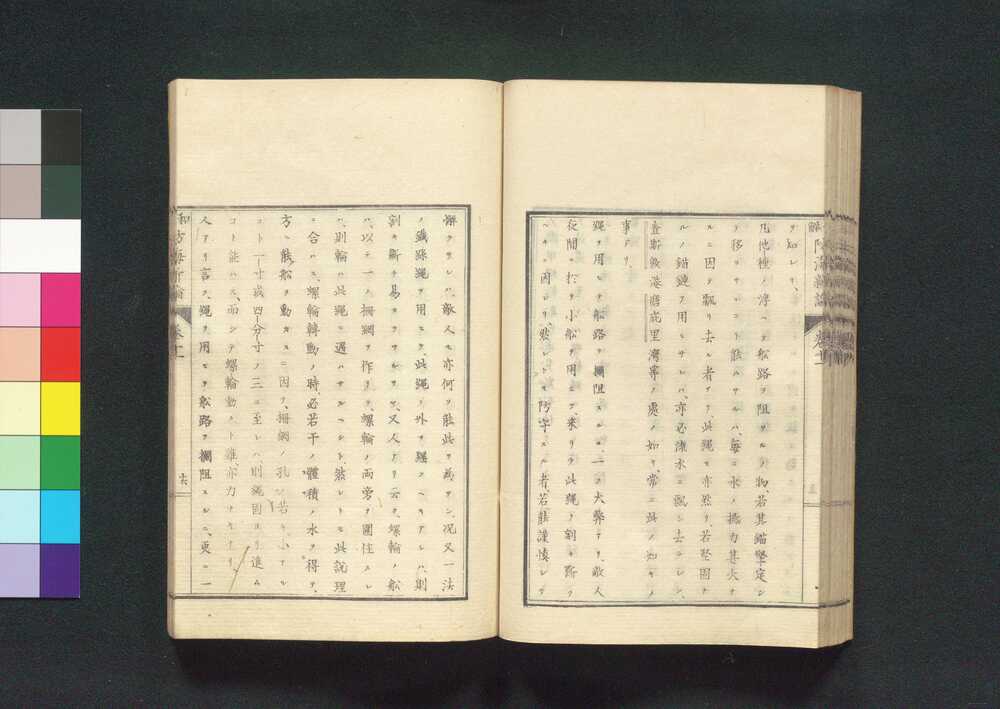 ヲ知レリ、
凡他種ノ浮ヘテ舩路ヲ阻ヲルノ物、若其錨堅定シ
テ移ヲサルコト能ハサルハ、每ニ水ノ撼力甚大ナ
ルニ因テ飄リ去ル者アリ、此繩モ亦然リ、若堅固ナ
ルノ錨鏈ヲ用ヒサレハ、亦必漆水ニ飄シ去ラレン、
處ノ如キ、常ニ此ノ如キノ
事アリ、
繩ヲ用ヒテ舩路ヲ攔阻スルニ、一ノ大弊アリ、敵人
夜間ニ於テ小舩ヲ用ヒテ、來リテ此繩ヲ割キ斷ツ
ヘキニ因レリ、然レトモ防守スル者、若能謹慎シテ
懈ラサレハ、敵人モ亦何ソ能此ヲ爲サン、況又一法
ノ鐵絲繩ヲ用ヒテ、此繩ノ外ヲ纒フヘキアレハ、則
割キ斷チ易カラサルヲヤ、又人アリ云フ、螺輪ノ舩
ハ、以テ一ノ柵網ヲ作リテ、螺輪ノ兩旁ヲ圍住スレ
ハ、則輪ハ此繩ニ遇ハサルヘシト、然レトモ此說理
ニ合ハス、螺輪轉動ノ時、必若干ノ體積ノ水ヲ得テ、
方ニ能舩ヲ動カスニ因テ、柵網ノ孔、若キ小ナル
コト一寸或四分寸ノ三ニ至レハ、則繩固ヨリ進ム
コト能ハス、而シテ螺輪動クト雖亦力ナキナリ、
人アリ言フ、繩ヲ用ヒテ舩路ヲ攔阻スルニ、更ニ一
防海新論 卷十一
十六